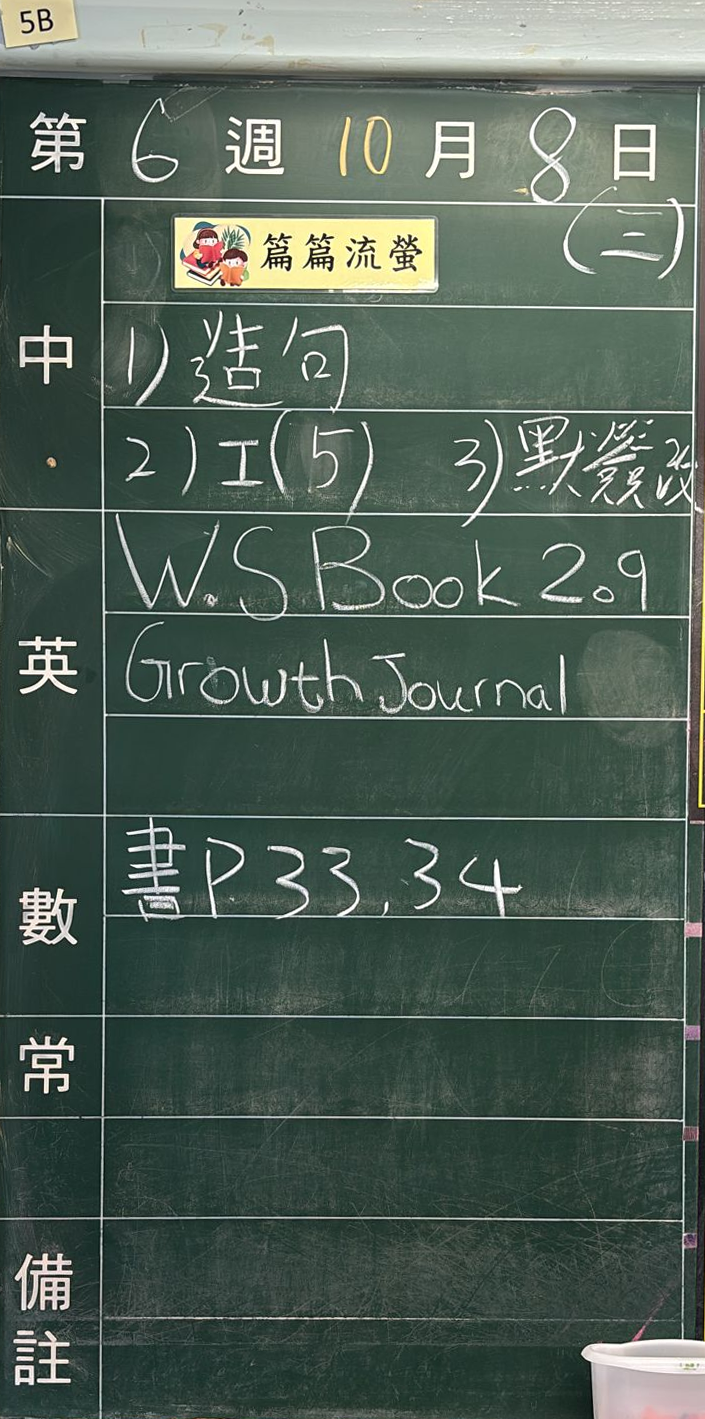 5B
第 6 週 10 月 8 日
(二)
篇篇流螢
中
1) 造句
2) I(5) 3) 默簽改
英
W.S Book 2.9
Growth Journal
數
書P33,34
常
備註